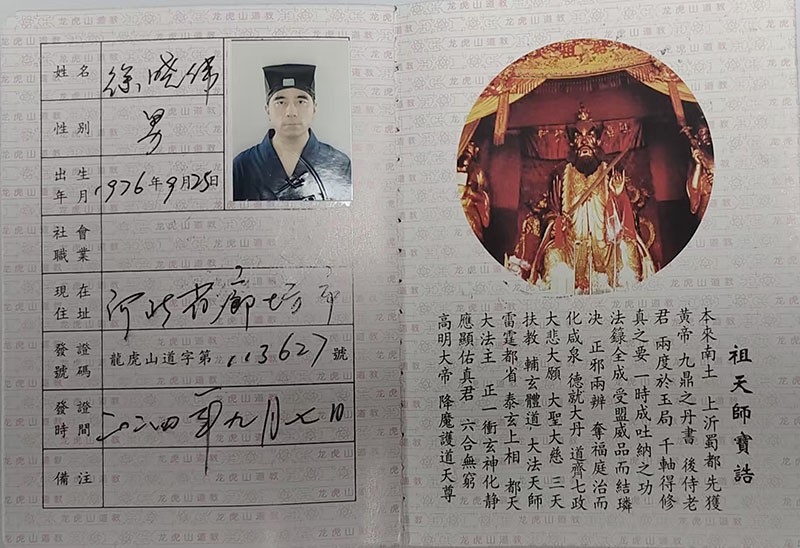 姓名 徐晓伟
性別 男
出生年月 1976年9月25日
社會職業
現在住址 河北省廊坊市
發證號碼 龍虎山道字第113627號
發證時間 二〇二四年九月七日
備注
祖天師寶誥
本來南土 上沂蜀都先獲
黃帝 九鼎之丹書 後侍老
君 兩度於玉局 千軸得修
真之要 一時成吐納之功
法籙全成 受盟威品而結璘
決 正邪兩辨 奪福庭治而
化咸泉 德就大丹 道齊七政
大悲大願 大聖大慈 三天
扶教 輔玄體道 大法天師
雷霆都省 泰玄上相 都天
大法主 正一衝玄神化靜
應顯佑真君 六合無窮
高明大帝 降魔護道天尊
龙虎山道教